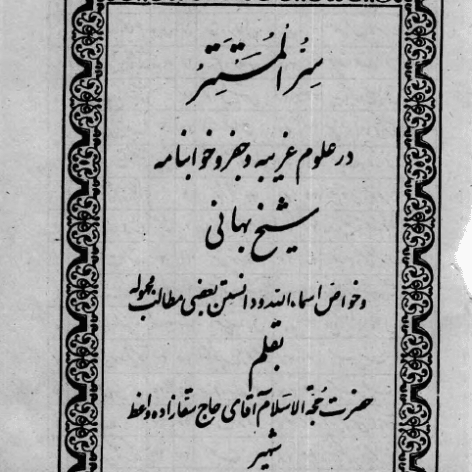 سِرُّ الْمُسْتَتِرُ
در علوم غریبه و جفر و خوابنامه
شیخ بهائی
و خواص اسماءالله و دانستن بعضی مطالب مجهوله
بقلم
حضرت حُجّة الاسلام آقای حاج سقازاده واعظ
شهیر